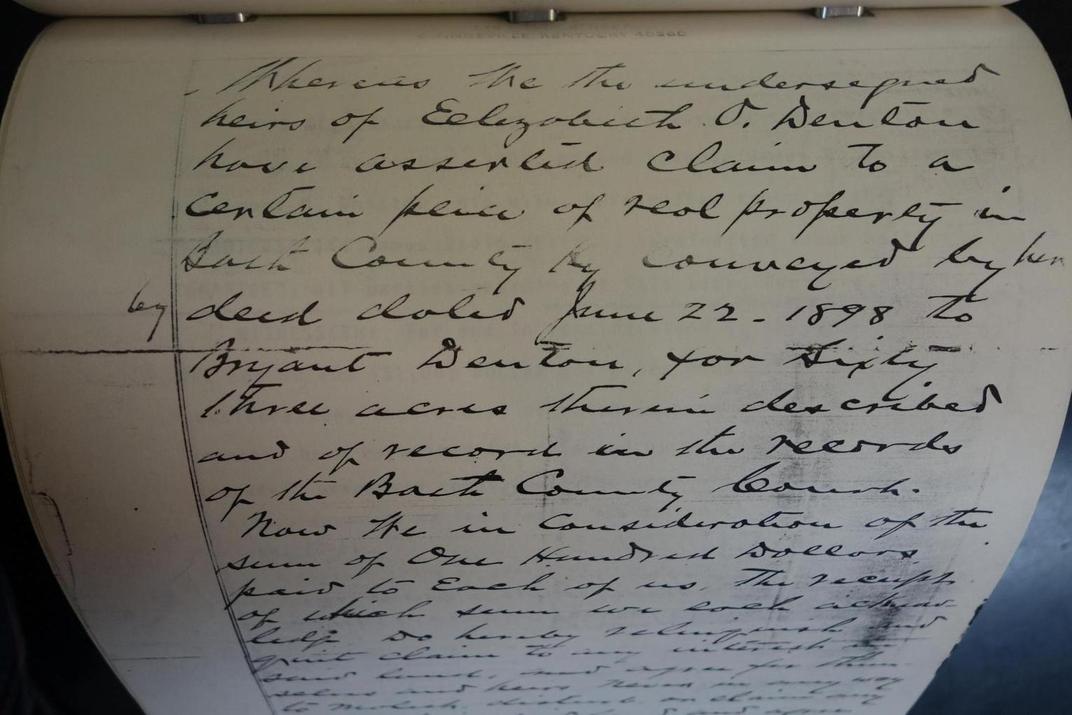 LOUISVILLE, KENTUCKY 40200
Whereas We the undersegned
heirs of Eelizabeth O. Denton
have asserted claim to a
certain peice of real property in
Bath County by conveyed by her
by deed dated June 22 - 1898 to
Bryant Denton, for Sixty
three acres therein described
and of record in the records
of the Bath County Court.
Now We in Consideration of the
sum of One Hundred Dollars
paid to Each of us, The receipt
of which sum we each acknow
ledge Do hereby relinquish and
quit claim to any interest in
said land, and agree for
selves and heirs never in any way
to molest, disturb or claim any
and agree